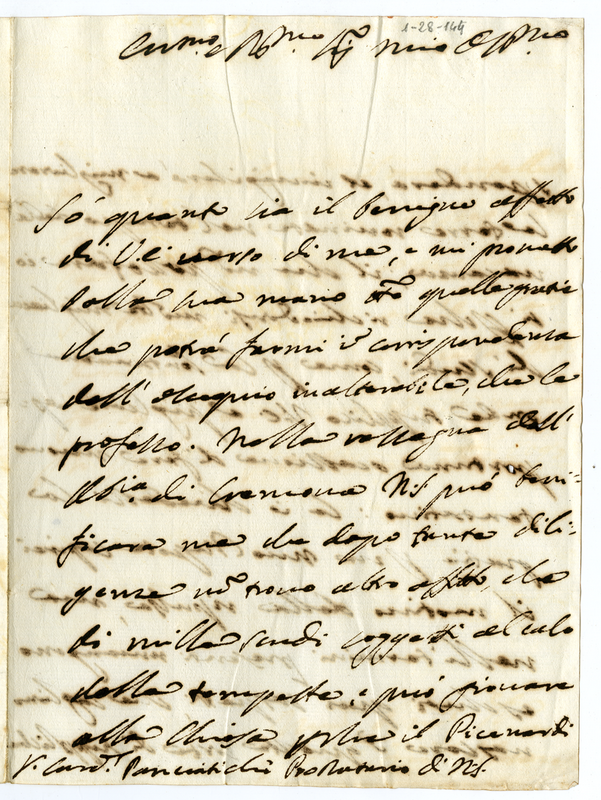 1-28-144
Em.mo e R.mo Sig. mio
Só quant sia il benigno affetto
di V.E. verso di me, e mi prometto
dalla sua mano quelle gratie
che potrá farmi corrispondenza
dell' ossequio inalterabile, che le
professo. Nella rassegna dell'
Abia. di Cremona può beni-
ficare me che dopo tante dili-
genze nō trovo altro, che
di mille scudi soggetti al
delle tempeste, e può giovare
alla Chiesa il Picenardi
S. Card.l Panciatichi ProDatario di